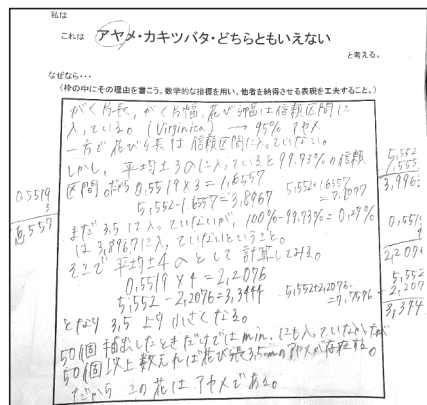 私は
これは アヤメ・カキツバタ・どちらともいえない
と考える。
なぜなら・・・
（枠の中にその理由を書こう。数学的な指標を用い、他者を納得させる表現を工夫すること。）
がく片長、がく片幅、花びら幅は信頼区間に
入っている。(Virginica) → 95% アヤメ
一方で花びら長は信頼区間に入っていない。
しかし、平均±3σに入っていると99.73%の信頼
区間。だから 0.5519×3=1.6557
5.552-1.6557=3.8967
5.552+1.6557
=7.2077
まだ3.5は入っていないが、100%-99.73%=0.27%
は3.8967に入っていないということ。
そこで平均±4σとして計算してみる。
0.5519×4=2.2076
5.552-2.2076=3.3444
5.552+2.2076
=7.7596
となり3.5より小さくなる。
50個抽出したときだけではmin.にも入っていないが
50個以上数えれば花びら長3.5cmのアヤメが存在する。
だからこの花はアヤメである。
0.5519
3
5.552
2.2076